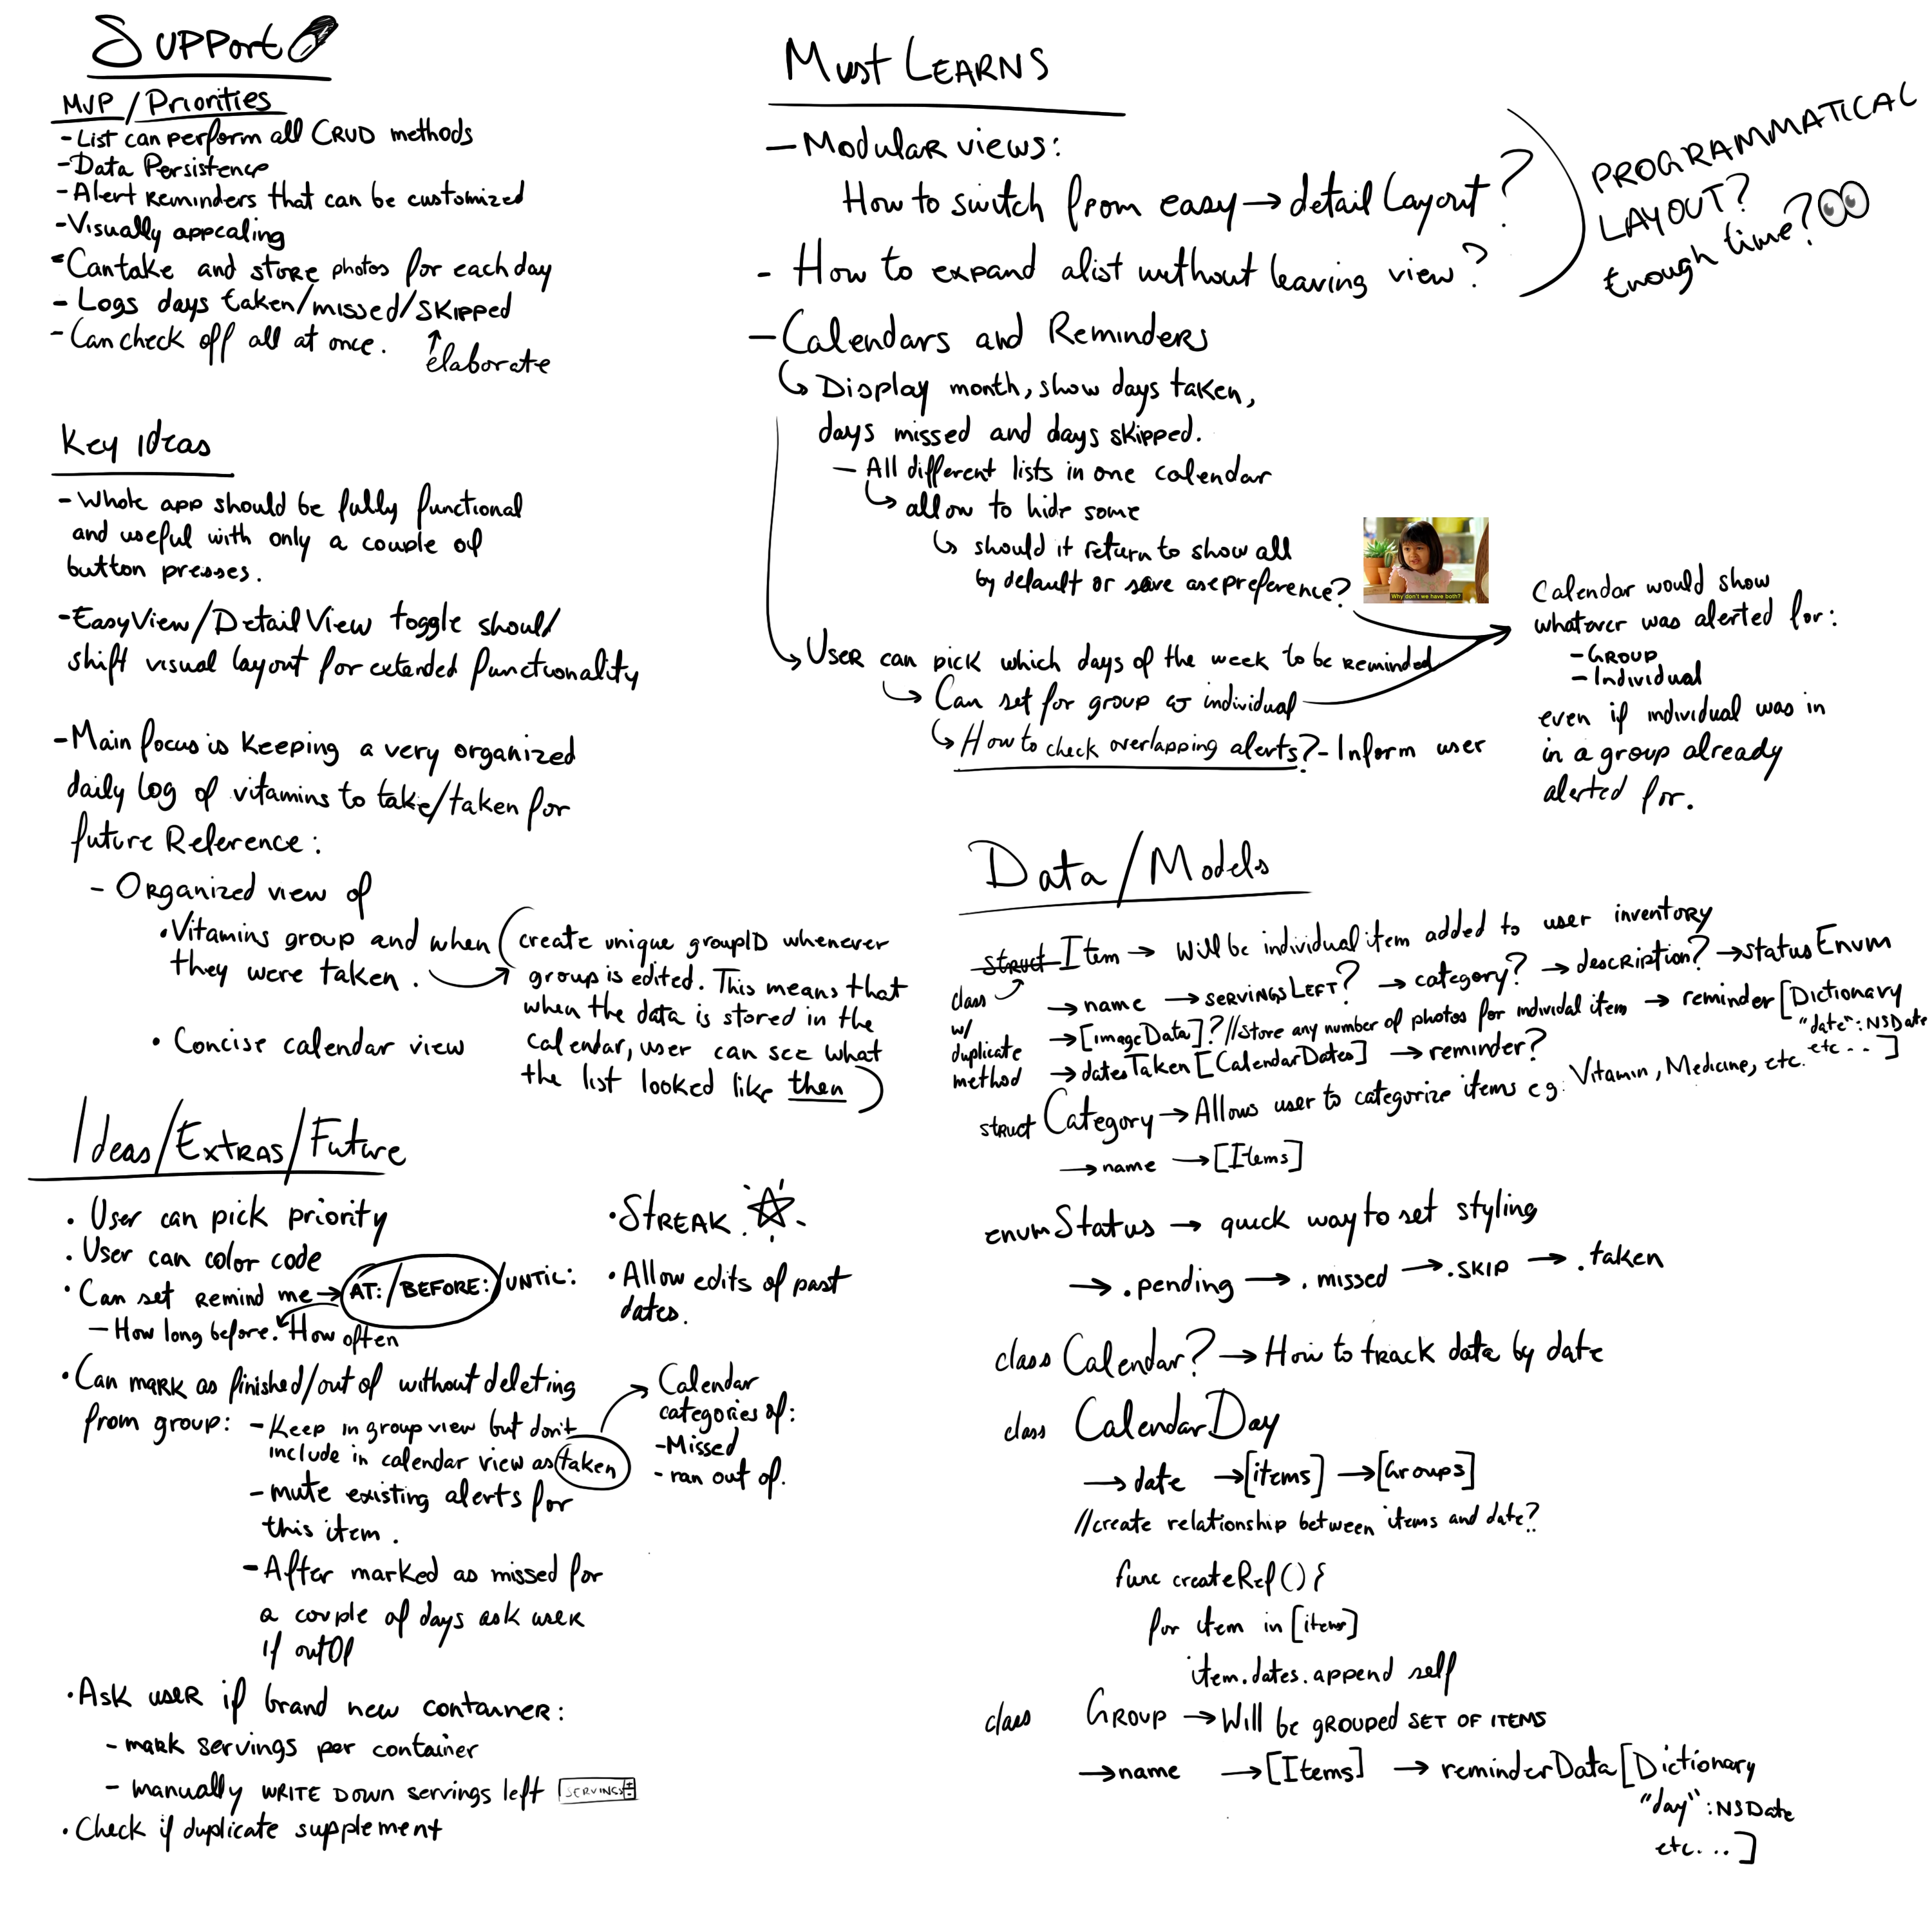 Support
MVP/Priorities
- List can perform all CRUD methods
- Data Persistence
- Alert Reminders that can be customized
- Visually appealing
- Can take and store photos for each day
- Logs days taken/missed/skipped
- Can check off all at once.
elaborate
Key Ideas
- Whole app should be fully functional
and useful with only a couple of
button presses.
- EasyView/DetailView toggle should
shift visual layout for extended functionality
- Main focus is keeping a very organized
daily log of vitamins to take/taken for
future Reference:
- Organized view of
• Vitamins group and when
they were taken. →
(create unique groupID whenever
group is edited. This means that
when the data is stored in the
calendar, user can see what
the list looked like then)
• Concise calendar view
Ideas/Extras/Future
• User can pick priority
• User can color code
• Can set remind me → AT:/BEFORE:/UNTIL:
- How long before. How often
• Can mark as finished/out of without deleting
from group: - Keep in group view but don't
include in calendar view as taken
- mute existing alerts for
this item.
- After marked as missed for
a couple of days ask user
if outOf
• Ask user if brand new container:
- mark servings per container
- manually write down servings left
SERVINGS
• Check if duplicate supplement
• Streak
• Allow edits of past
dates.
Calendar
categories of:
- Missed
- ran out of.
Must Learns
- Modular views:
How to switch from easy → detail layout?
- How to expand a list without leaving view?
PROGRAMMATICAL
LAYOUT?
Enough time?
- Calendars and Reminders
↳ Display month, show days taken,
days missed and days skipped.
- All different lists in one calendar
↳ allow to hide some
↳ should it return to show all
by default or save as preference?
Why don't we have both?
↳ User can pick which days of the week to be reminded
↳ Can set for group or individual
↳ How to check overlapping alerts? - Inform user
Calendar would show
whatever was alerted for:
- Group
- Individual
even if individual was in
in a group already
alerted for.
Data/Models
struct Item → Will be individual item added to user inventory
class
w/
duplicate
method
→ name → servingsLeft? → category? → description? → statusEnum
→ [imageData]? //store any number of photos for individal item → reminder [Dictionary
"date": NSDate
etc...]
→ datesTaken [CalendarDates] → reminder?
struct Category → Allows user to categorize items eg. Vitamin, Medicine, etc.
→ name → [Items]
enum Status → quick way to set styling
→ .pending → .missed → .skip → .taken
class Calendar? → How to track data by date
class CalendarDay
→ date → [items] → [Groups]
//create relationship between items and date?
func createRef() {
for item in [items]
item.dates.append self
class Group → Will be grouped set of items
→ name → [Items] → reminderData [Dictionary
"day": NSDate
etc...]